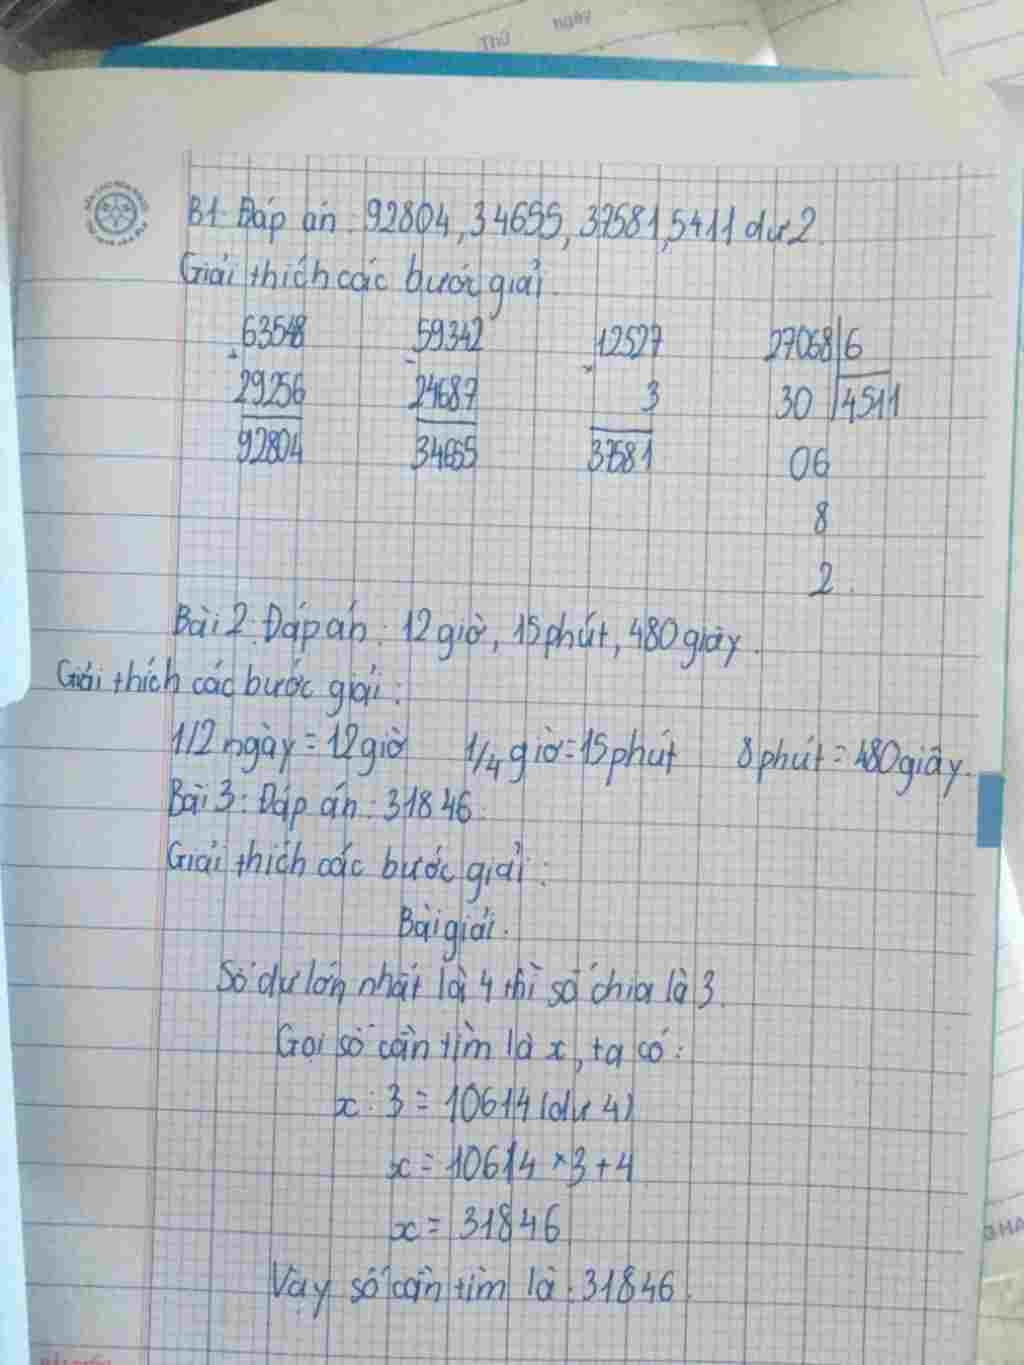 Thứ ngày
B1. Đáp án: 92804, 34655, 37581, 5411 dư 2.
Giải thích các bước giải.
63548 59342 12527 27068 6
+ - x
29256 24687 3 30 4511
92804 34655 37581 06
8
2.
Bài 2: Đáp án: 12 giờ, 15 phút, 480 giây.
Giải thích các bước giải:
1/2 ngày = 12 giờ 1/4 giờ = 15 phút 8 phút = 480 giây.
Bài 3: Đáp án: 31846
Giải thích các bước giải:
Bài giải.
Số dư lớn nhất là 4 thì số chia là 3.
Gọi số cần tìm là x, ta có:
x : 3 = 10614 (dư 4)
x = 10614 × 3 + 4
x = 31846
Vậy số cần tìm là: 31846.